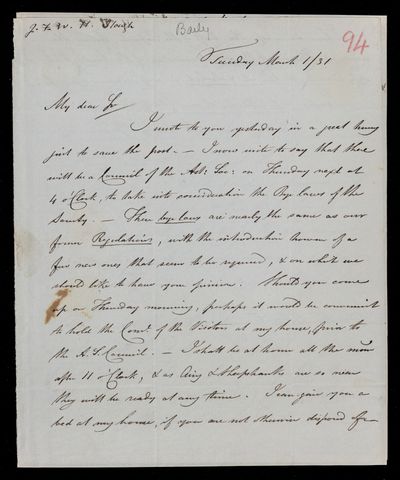 J. F. W. H. Slough
Baily
94
Tuesday March 1/31
My dear Sr
I wrote to you yesterday in a great hurry
just to save the post. — I now write to say that there
will be a Council of the Ast: Soc: on Thursday next at
4 o'Clock, to take into consideration the Bye laws of the
Society. — These bye laws are nearly the same as our
former Regulations, with the introduction however of a
few new ones that seem to be required, & on which we
should like to have your opinion. Should you come
up on Thursday morning, perhaps it would be convenient
to hold the Comee. of the Visitors at my house, prior to
the A. S. Council. — I shall be at home all the morng
after 11 o'Clock, & as Airy & Sheepshanks are so near
they will be ready at any time. I can give you a
bed at my house, if you are not otherwise disposed of —